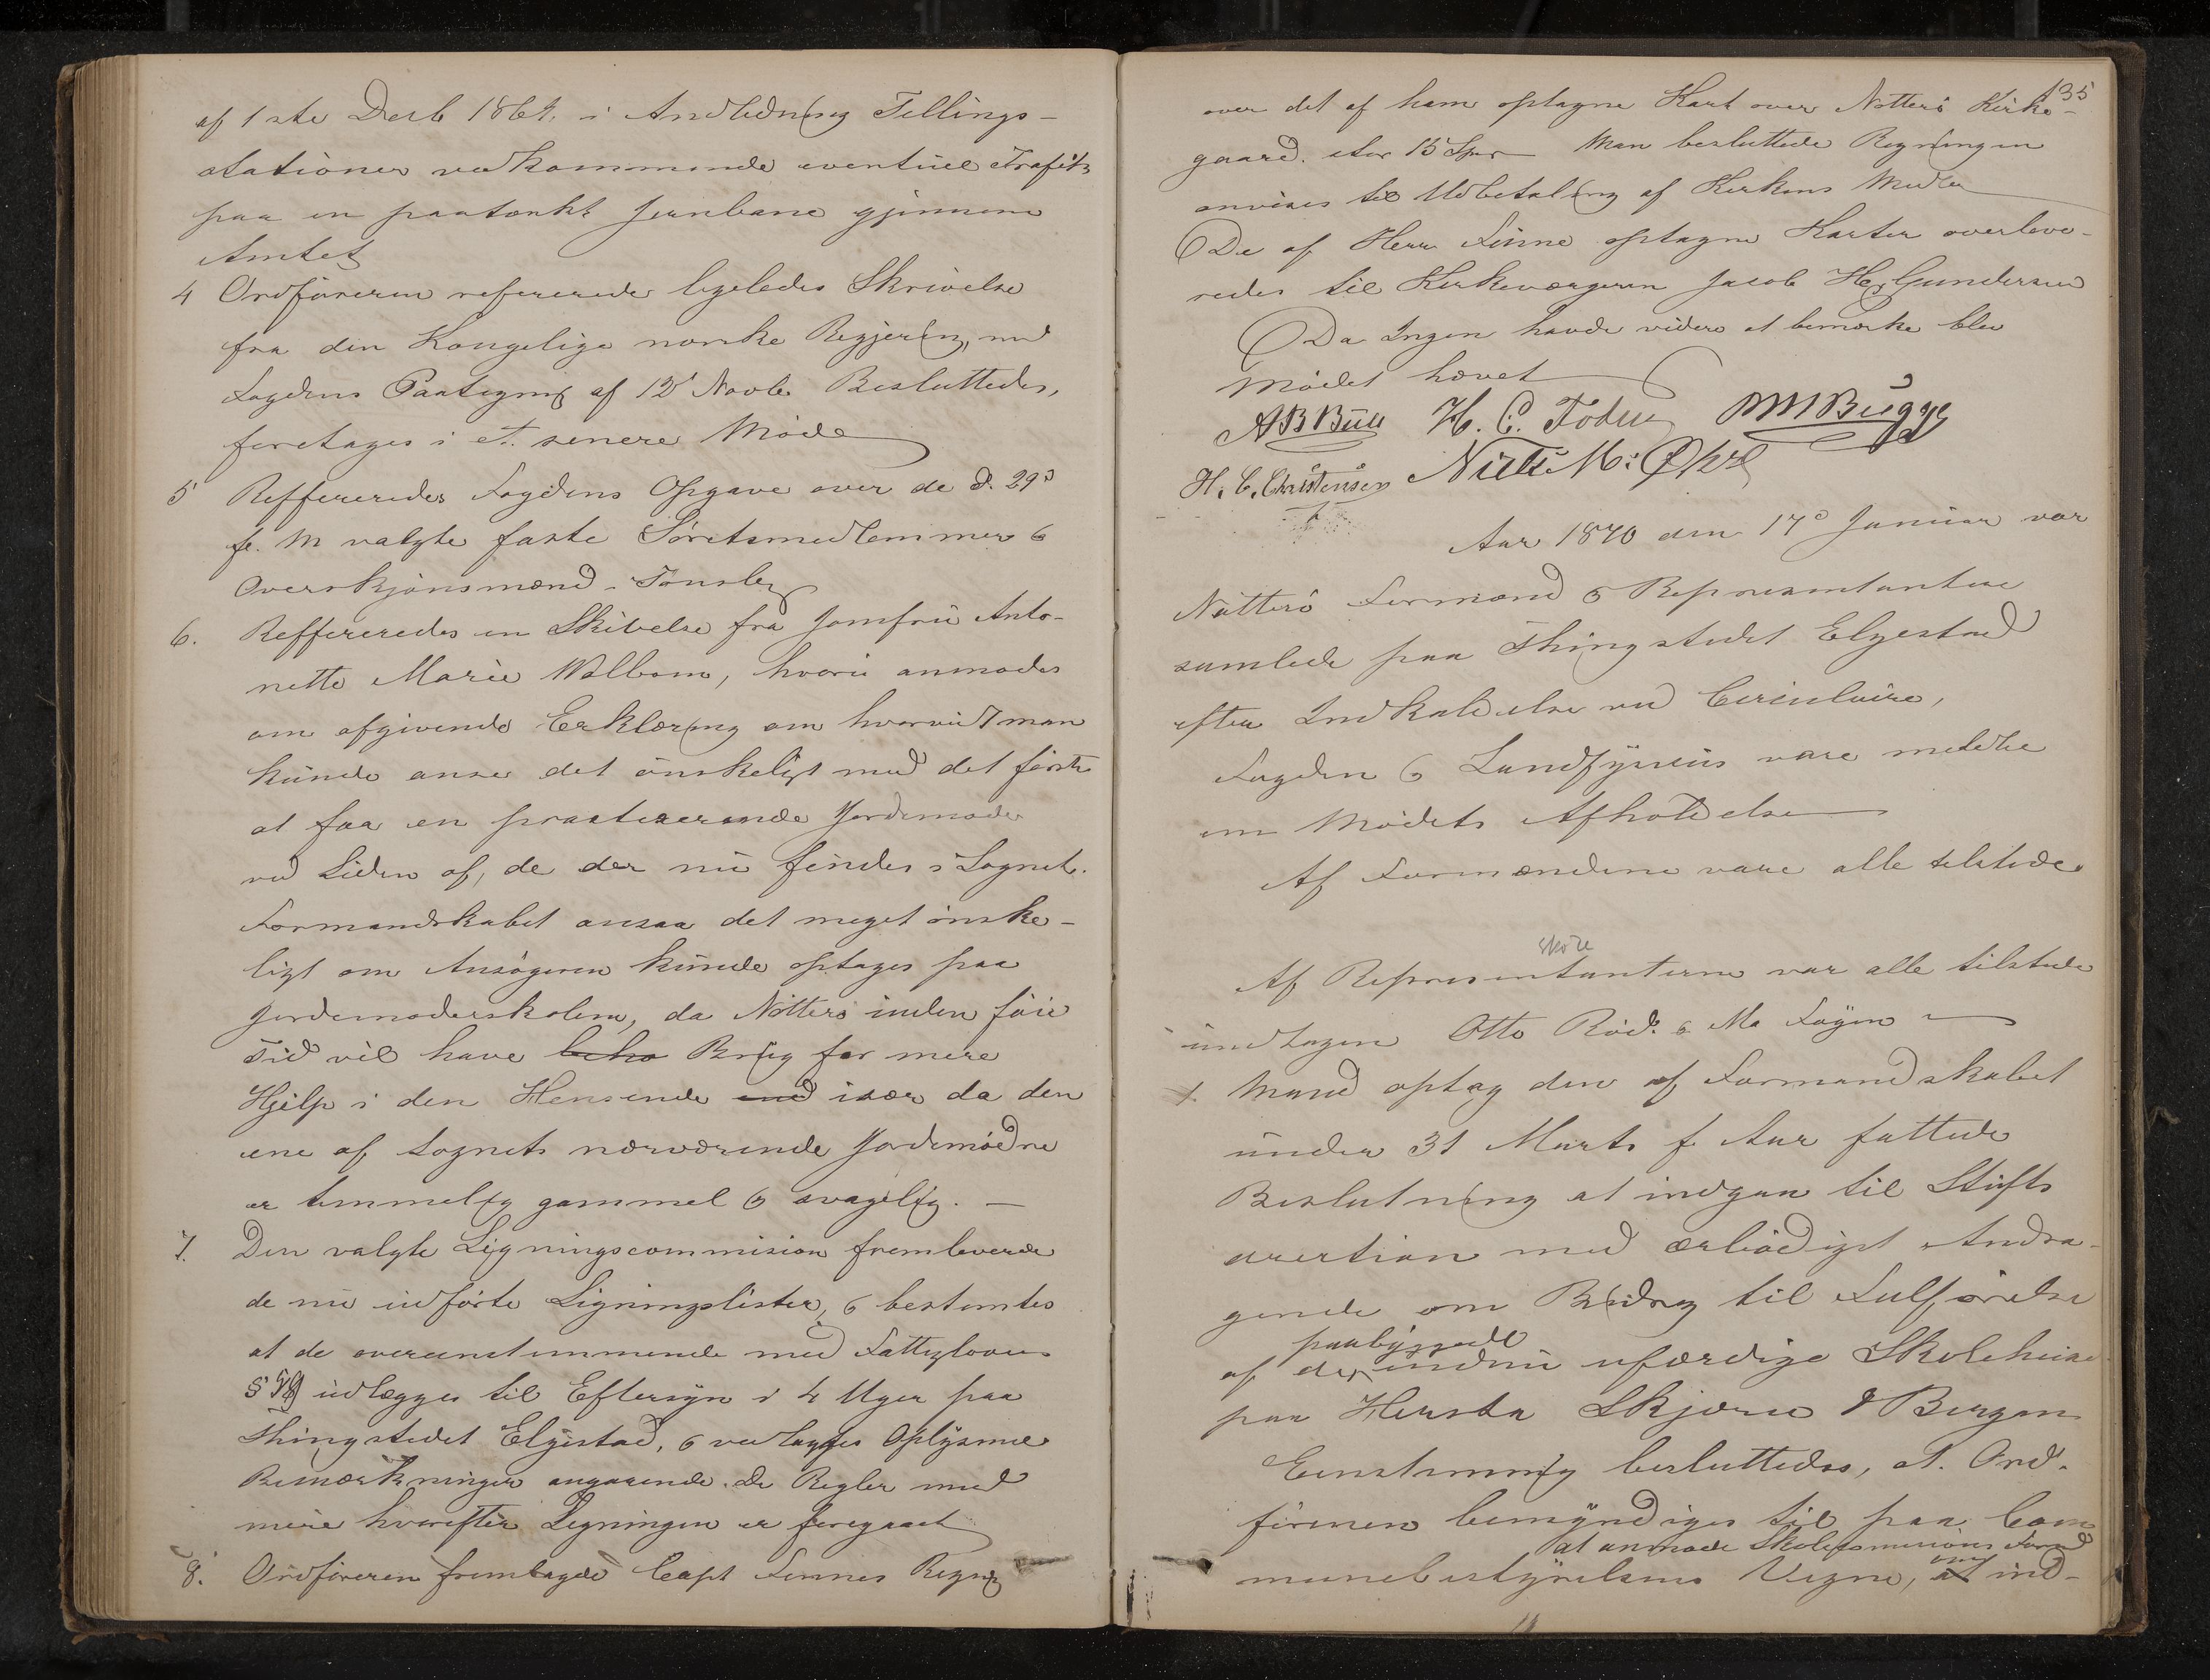 af 1ste Decb 1869. i Andledning Tellings-
stationer vedkommende eventuel Trafik
paa en paatænkt Jernbane gjennem
Amtet
4 Ordføreren refererede ligeledes Skrivelse
fra den Kongelige norske Regjering, med
Fogdens Paategning af 12' Novbr. Besluttedes,
foretages i et senere Møde
5 Reffereredes Fogdens Opgave over de d. 29d
f. M valgte faste Søretsmedlemmer &
Overskjønsmænd - Tønsberg
6. Reffereredes en Skivelse fra Jomfru Anto-
nette Marie Walbom, hvori anmodes
om afgivende Erklæring om hvorvidt man
kunde anse det ønskeligt med det første
at faa en practiserende Jordemoder
ved Siden af, de der nu findes i Sognet.
Formandskabet ansaa det meget ønske-
ligt om Ansøgeren kunde optages paa
Jordemoderskolen, da Nøtterø inden føie
Tid vil have beho Brug for mere
Hjelp i den Henseende end især da den
ene af Sognets nærværende Jordemødre
er temmelig gammel & svagelig. -
7. Den valgte Ligningscommision fremleverede
de nu udførte Ligningslister, & bestemtes
at de overeenstemmende med Fattigloven
§ udlægges til Eftersyn i 4 Uger paa
Thingstedet Elgestad, & vedlagges Oplysende
Bemærkninger angaaende. De Regler med
mere hvorefter Ligningen er foregaaet
8. Ordføreren fremlagde Capt Finnes Regng
135
over det af ham optagne Kart over Nøtterø Kirke-
gaard. stor 15 Spd Man besluttede Regningen
anvises til Udbetaling af Kirkens Midler
De af Herr Finne optagne Karter overleve-
redes til Kirkeværgeren Jacob H. Gundersen
Da Ingen havde videre at bemærke blev
Mødet hævet
AB Bull H. C. Foden MM Bugge
H. C. Christensen Niels M: Øhre
Aar 1870 den 17d Januar var
Nøtterø Formænd & Representantere
samlede paa Thingstedet Elgestad
efter Indkaldelse ved Circulaire,
Fogden & Landfysicus vare meldte
om Mødets Afholdelse
Af Formændene vare alle tilstede.
Af Representanterne var alle tilstede
undtagen Otto Rød. & Ma Føyen
1. Mand optog den af Formandskabet
under 31 Marts f. Aar fattede
Beslutning at indgaa til Stifts
direction med ærbødigst Andra-
gende om Bidrag til Fulførelse
paabyggede
af de endnu ufærdige Skolehuse
paa Hersta Skjærve & Bergan
Eenstemmig besluttedes, at. Ord-
føreren bemyndiges til paa Com
at anmode Skolecomisions Formd
munebestyrelsens Vegne, at om ind-